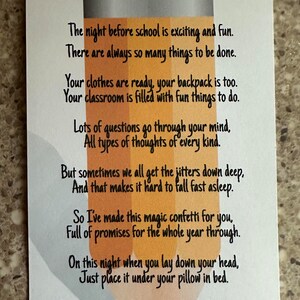 The night before school is exciting and fun.
There are always so many things to be done.
Your clothes are ready, your backpack is too.
Your classroom is filled with fun things to do.
Lots of questions go through your mind,
All types of thoughts of every kind.
But sometimes we all get the jitters down deep,
And that makes it hard to fall fast asleep.
So I've made this magic confetti for you,
Full of promises for the whole year through.
On this night when you lay down your head,
Just place it under your pillow in bed.